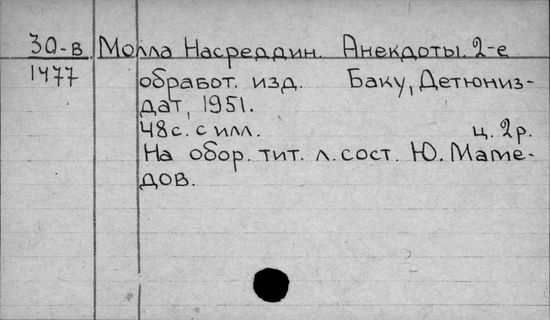 30-в Молла Насреддин. Анекдоты. 2-е
1477 обработ. изд. Баку, Детюниз-
дат, 1951.
48 с. с илл. ц. 2 р.
На обор. тит. л. сост. Ю. Маме-
дов.